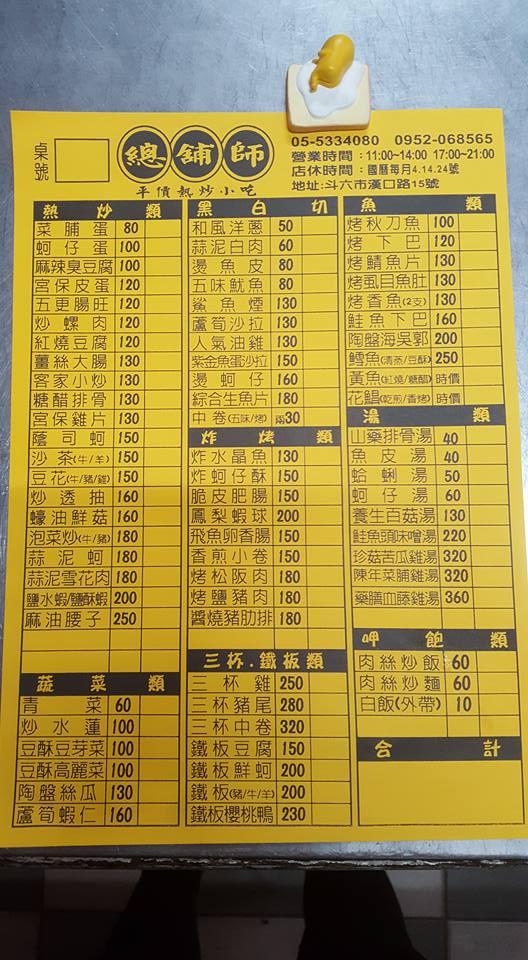 桌號
總舖師
平價熱炒小吃
05-5334080 0952-068565
營業時間：11:00~14:00 17:00~21:00
店休時間：國曆每月4.14.24號
地址:斗六市漢口路15號
熱炒類
菜脯蛋 80
蚵仔蛋 100
麻辣臭豆腐 100
宮保皮蛋 120
五更腸旺 120
炒螺肉 120
紅燒豆腐 120
薑絲大腸 130
客家小炒 130
糖醋排骨 130
宮保雞片 130
蔭司蚵 150
沙茶(牛/羊) 150
豆花(牛/豬/雞) 150
炒透抽 160
蠔油鮮菇 160
泡菜炒(牛/豬) 180
蒜泥蚵 180
蒜泥雪花肉 180
鹽水蝦/鹽酥蝦 200
麻油腰子 250
蔬菜類
青菜 60
炒水蓮 100
豆酥豆芽菜 100
豆酥高麗菜 100
陶盤絲瓜 130
蘆筍蝦仁 160
黑白切
和風洋蔥 50
蒜泥白肉 60
燙魚皮 80
五味魷魚 80
鯊魚煙 130
蘆筍沙拉 130
人氣油雞 130
紫金魚蛋沙拉 150
燙蚵仔 160
綜合生魚片 180
中卷(五味/烤) 兩30
炸烤類
炸水晶魚 130
炸蚵仔酥 150
脆皮肥腸 150
鳳梨蝦球 200
飛魚卵香腸 150
香煎小卷 150
烤松阪肉 180
烤鹽豬肉 180
醬燒豬肋排 180
三杯.鐵板類
三杯雞 250
三杯豬尾 280
三杯中卷 320
鐵板豆腐 150
鐵板鮮蚵 200
鐵板(豬/牛/羊) 200
鐵板櫻桃鴨 230
魚類
烤秋刀魚 100
烤下巴 120
烤鯖魚片 130
烤虱目魚肚 130
烤香魚(2支) 130
鮭魚下巴 160
陶盤海吳郭 200
鱈魚(清蒸/豆酥) 250
黃魚(紅燒/糖醋) 時價
花鯧(乾煎/香烤) 時價
湯類
山藥排骨湯 40
魚皮湯 40
蛤蜊湯 50
蚵仔湯 60
養生百菇湯 130
鮭魚頭味噌湯 220
珍菇苦瓜雞湯 320
陳年菜脯雞湯 320
藥膳血藤雞湯 360
呷飽類
肉絲炒飯 60
肉絲炒麵 60
白飯(外帶) 10
合計